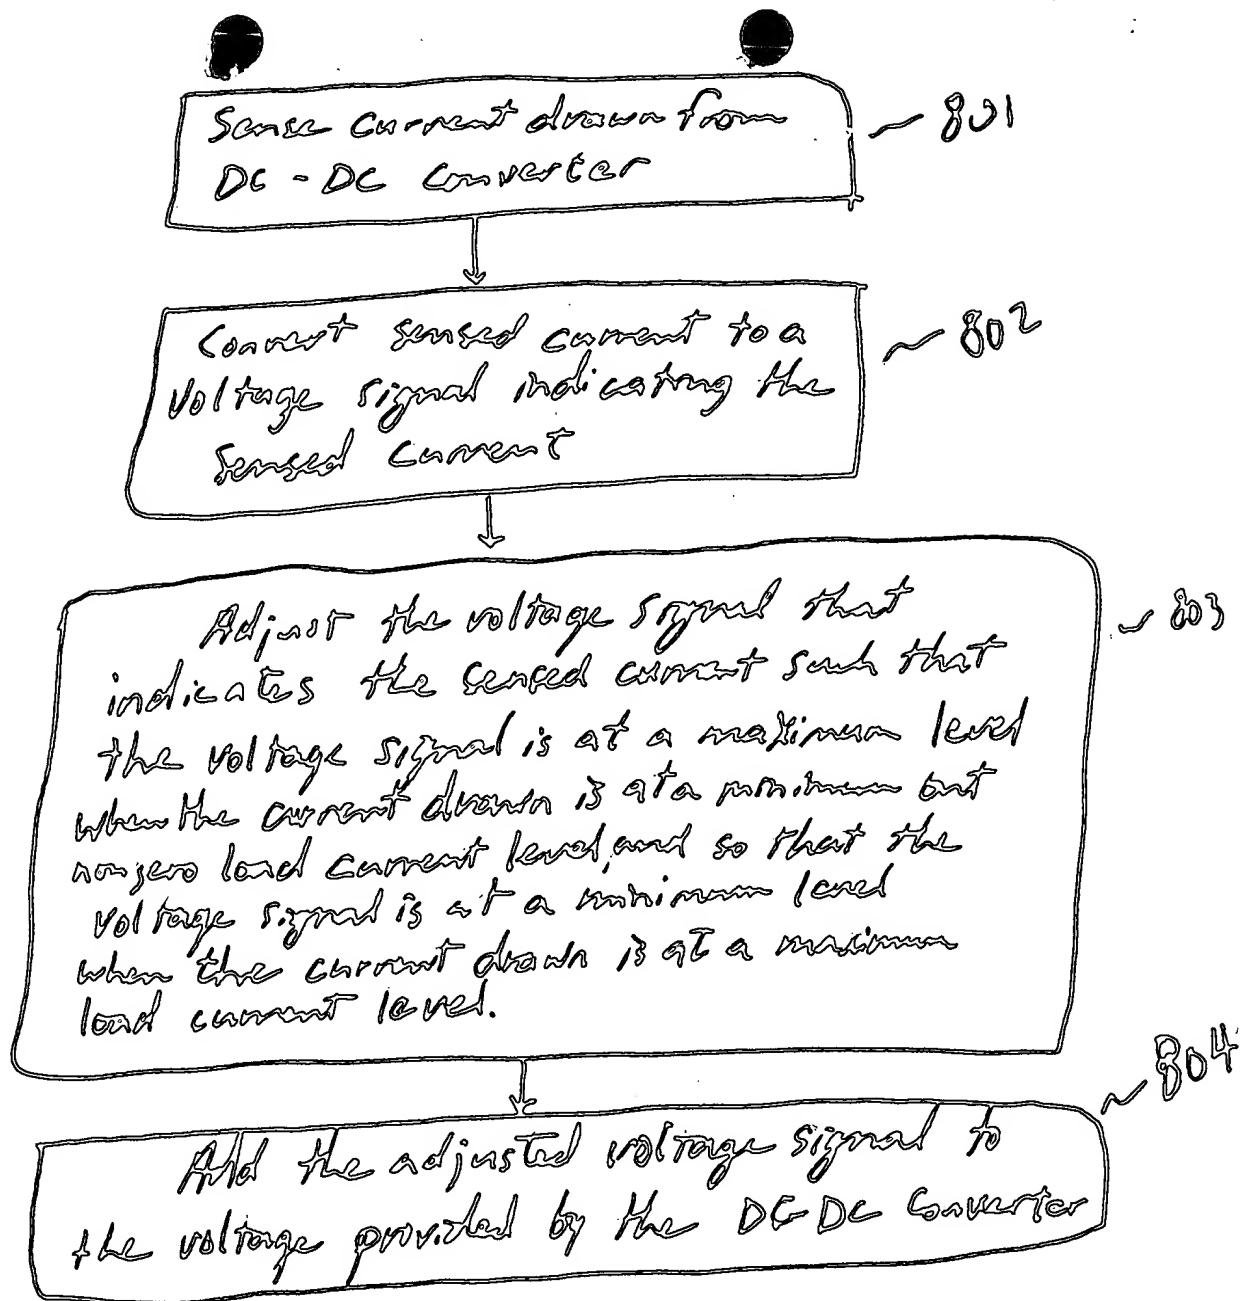 Sense current drawn from
DC-DC Converter
801
Convert sensed current to a
voltage signal indicating the
sensed current
802
Adjust the voltage signal that
indicates the sensed current such that
the voltage signal is at a maximum level
when the current drawn is at a minimum but
nonzero load current level, and so that the
voltage signal is at a minimum level
when the current drawn is at a maximum
load current level.
803
Add the adjusted voltage signal to
the voltage provided by the DC-DC Converter
804